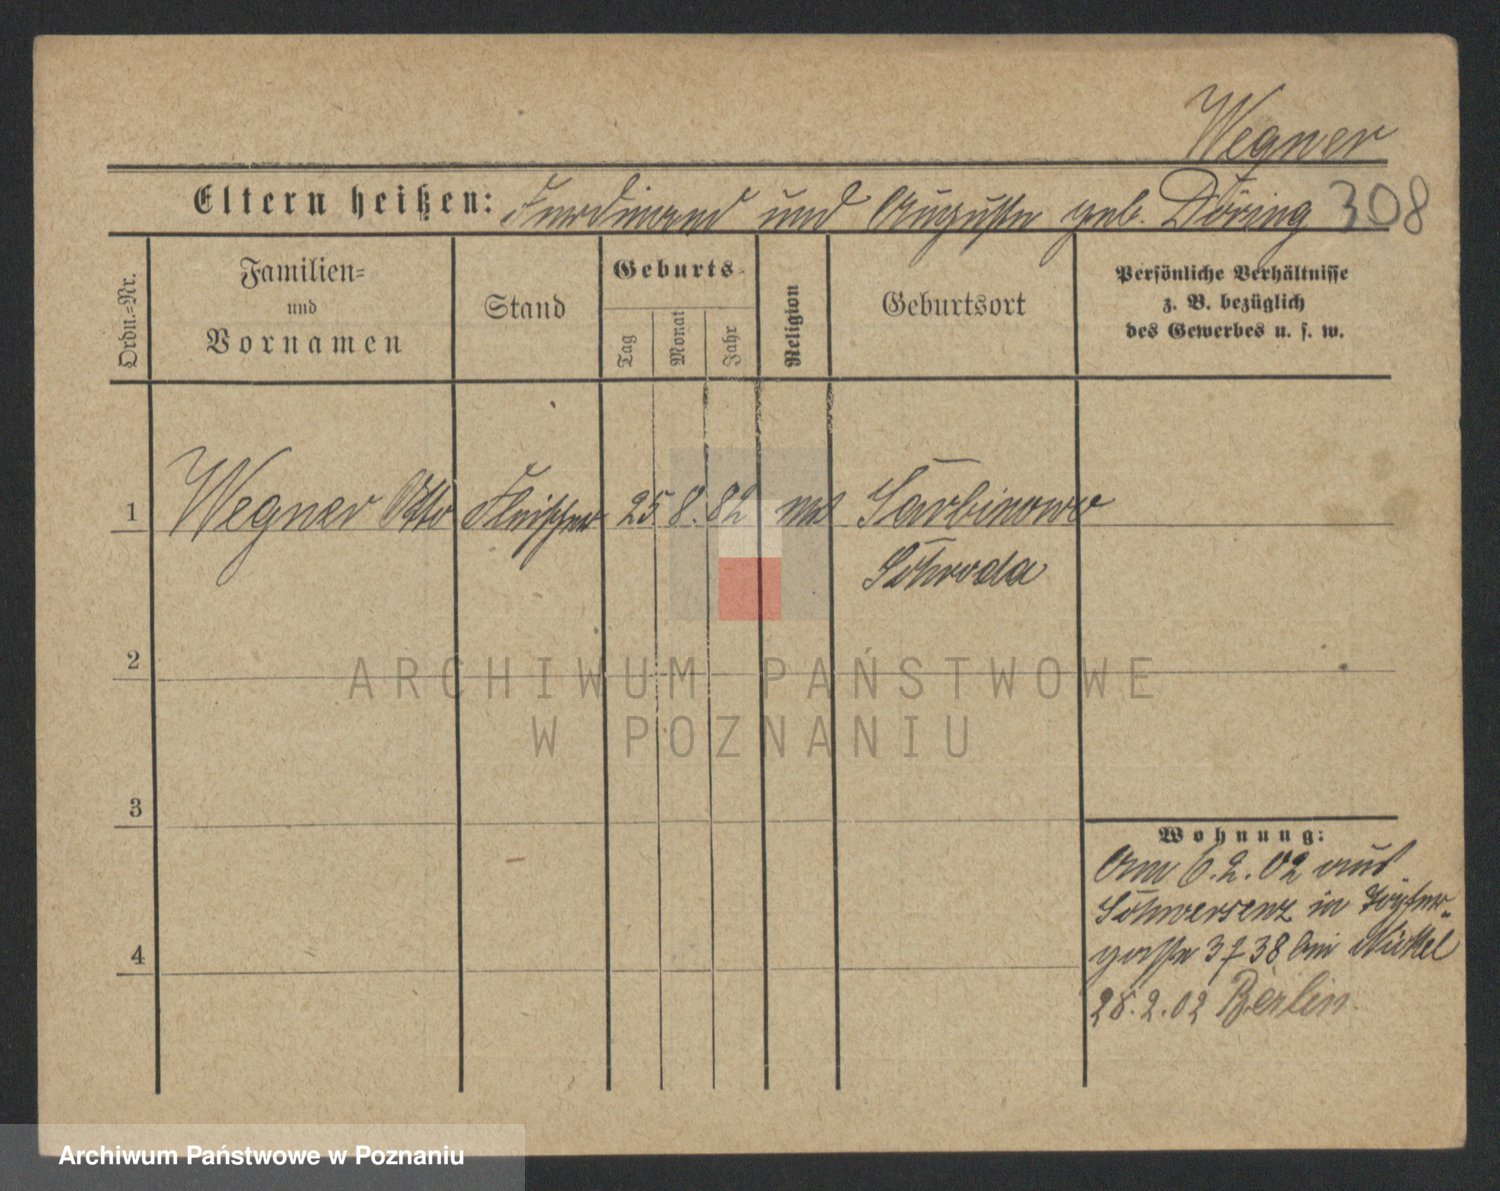 Wegner
Eltern heißen: Ferdinand und Auguste geb. Döring 308
Ordn.-Nr.
Familien-
und
Vornamen
Stand
Geburts-
Tag
Monat
Jahr
Religion
Geburtsort
Persönliche Verhältnisse
z. B. bezüglich
des Gewerbes u. s. w.
1 Wegner Otto Fleischer 25 8. 82 Sarbinowo
Schroda
2
ARCHIWUM PAŃSTWOWE
W POZNANIU
3
Wohnung:
Am 6.2.02 aus
Schwersenz in Töpfer-
gasse 37 38 bei Nickel
4
28.2.02 Berlin.
Archiwum Państwowe w Poznaniu